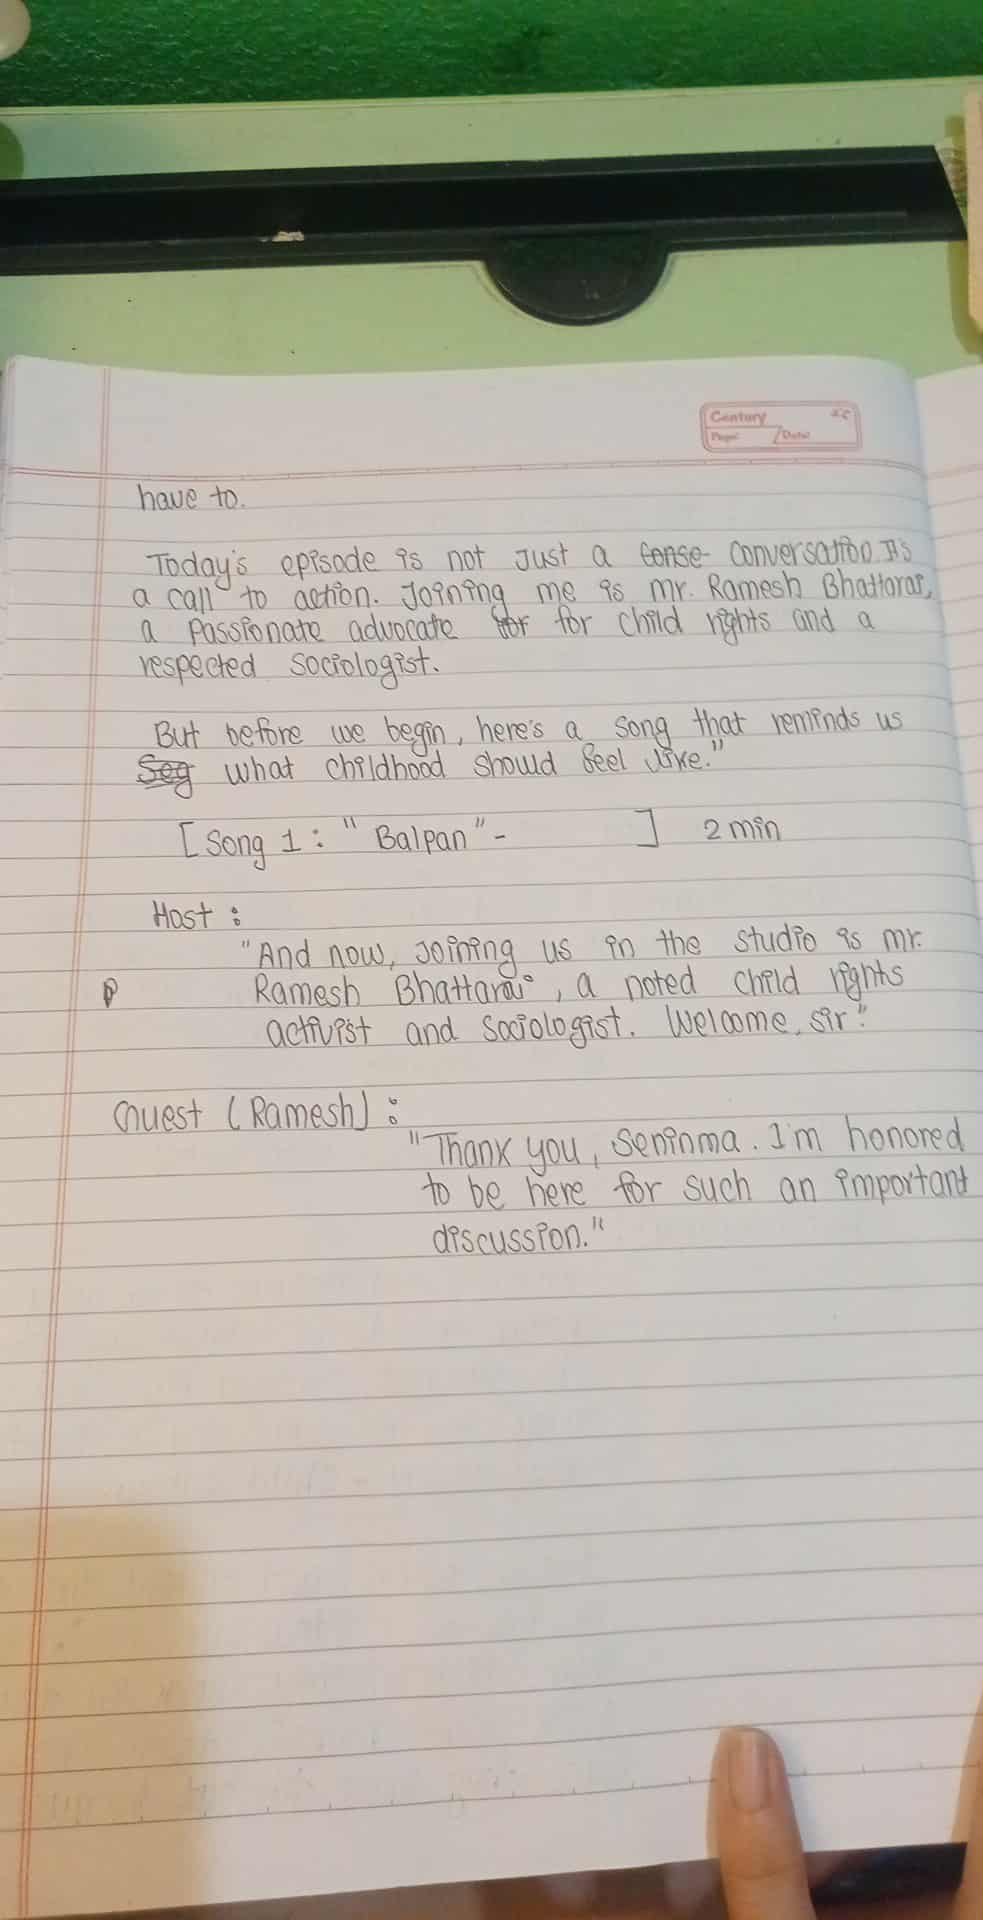 Century
Page: Date:
have to.
Today's episode is not Just a conse- conversation. It's
a call to action. Joining me is mr. Ramesh Bhattarai,
a passionate advocate for for child rights and a
respected sociologist.
But before we begin, here's a song that reminds us
what childhood should feel like."
[ Song 1 : " Balpan " - ] 2 min
Host :
"And now, Joining us in the studio is mr.
Ramesh Bhattarai , a noted child rights
activist and sociologist. Welcome, sir."
Guest (Ramesh) :
"Thank you, Seninma. I'm honored
to be here for such an important
discussion."